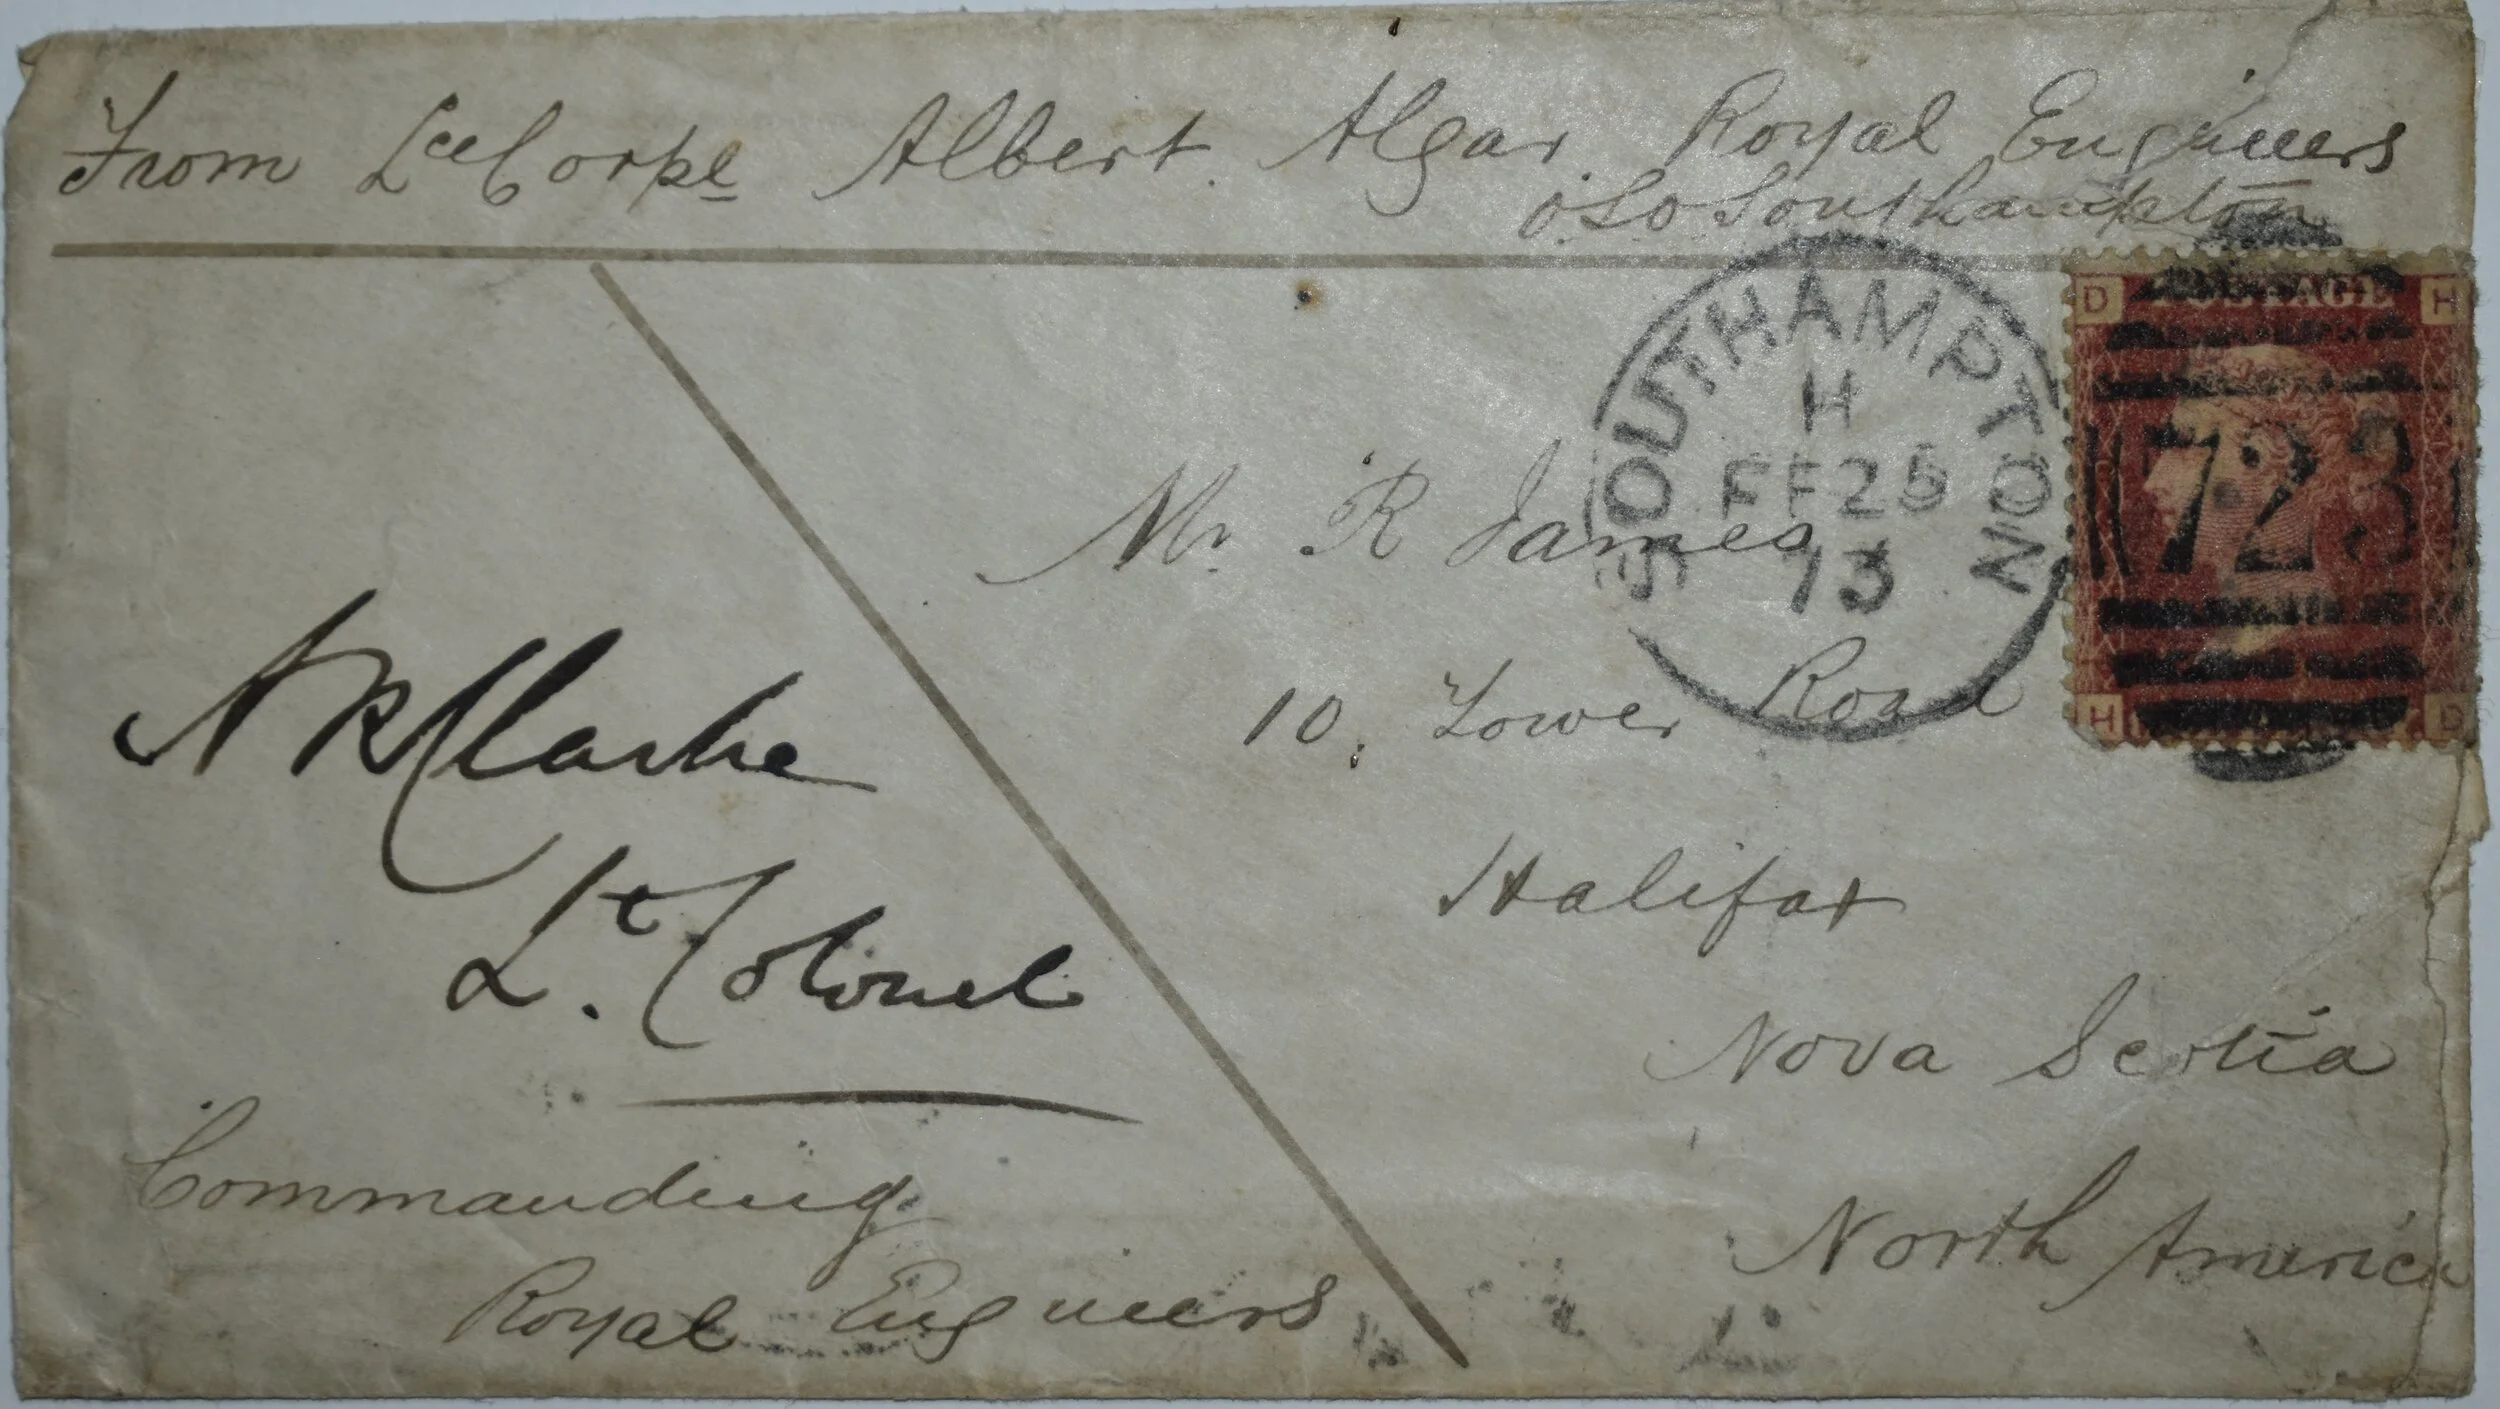 From Lce Corpl Albert Algar Royal Engineers
O.S.O Southampton
D POSTAGE H
723
H D
SOUTHAMPTON
H
FE 25
73
Mr R James
10, Lower Road
Halifax
Nova Scotia
North America
A R Clarke
Lt. Colonel
Commanding
Royal Engineers